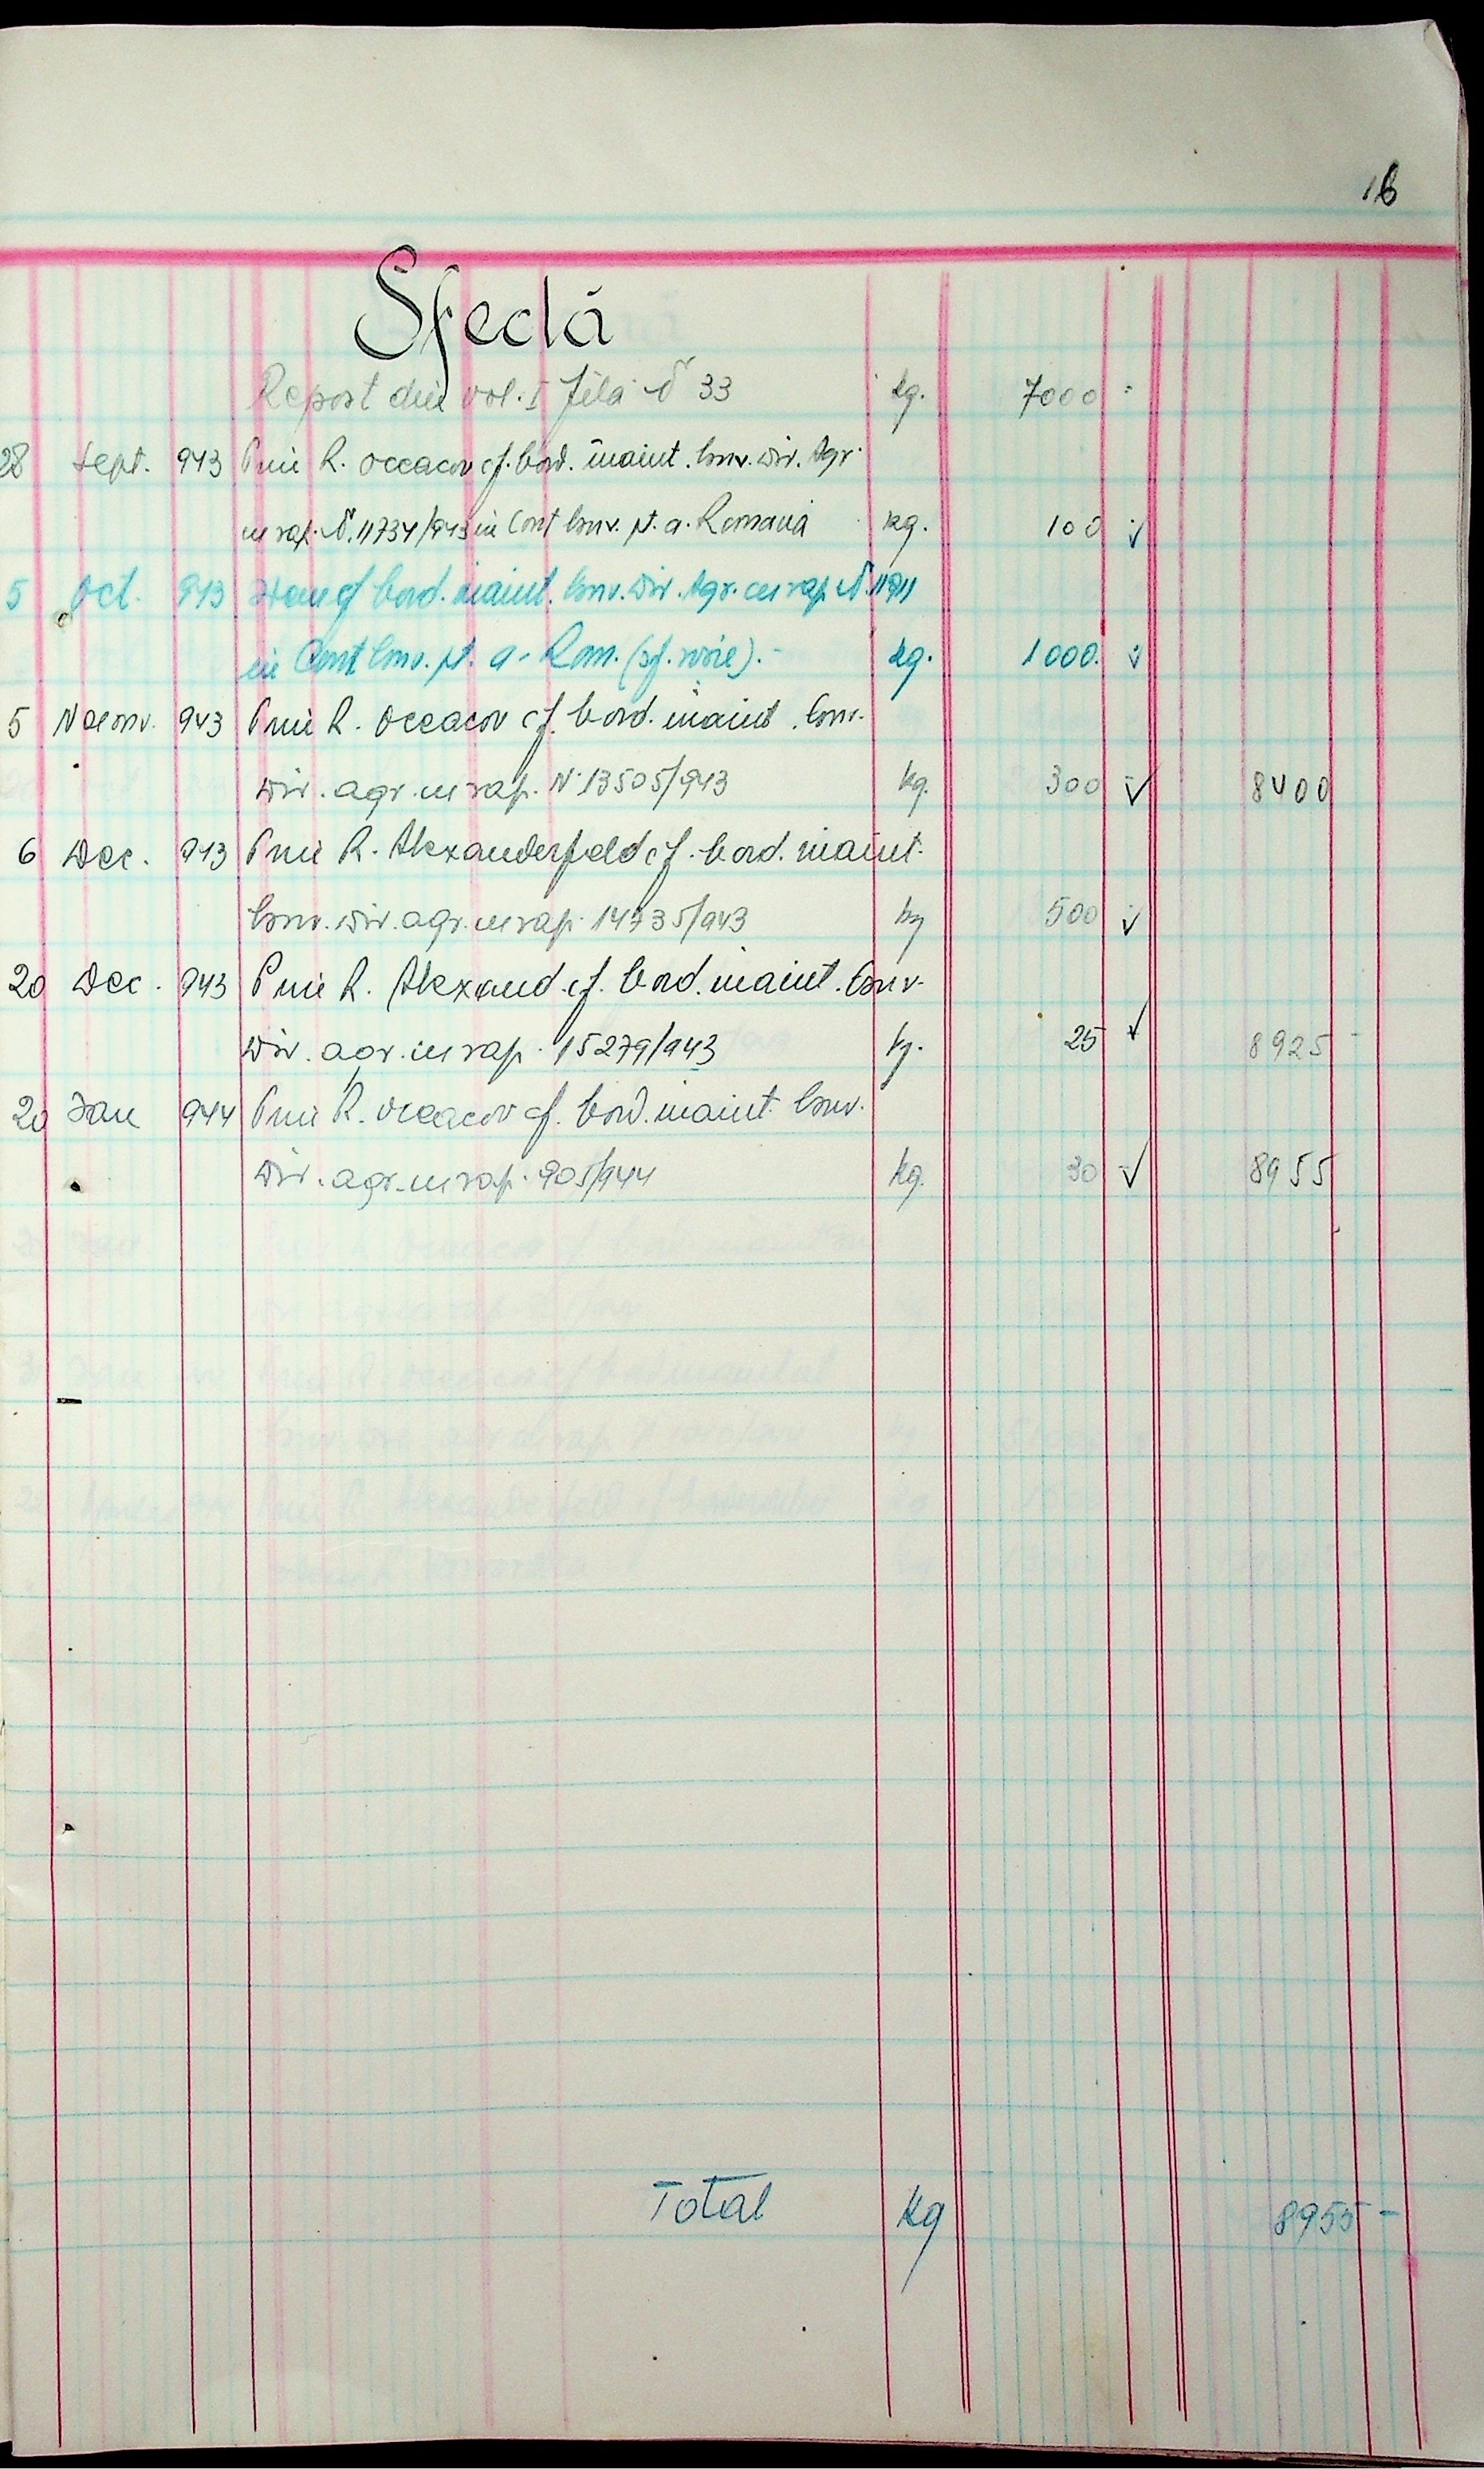 16
Sfeclă
Report din vol. I fila № 33 kg. 7000
28 Sept. 943 Prin R. Oceacov cf. bord. înaint. Dir. Agr.
cu rap. №. 11734/943 in Cont pt. a. Romană kg. 100 √
5 Oct. 943 Idem cf bord. înaint. Dir. Agr. cu rap. №. 11911
in Cont pt. a. Rom. (sf. roșie). kg. 1000. √
5 Noemv. 943 Prin R. Oceacov cf. bord. înaint.
Dir. agr. cu rap. N. 13505/943 kg. 300 √ 8400
6 Dec. 943 Prin R. Alexanderfeld cf. bord. înaint.
Dir. agr. cu rap. 14735/943 kg 500 √
20 Dec. 943 Prin R. Alexand. cf. bord. înaint.
Dir. agr. cu rap. 15279/943 kg. 25 √ 8925 -
20 Ian 944 Prin R. Oceacov cf. bord. înaint.
Dir. agr. cu rap. 905/944 kg. 30 √ 8955
Total kg 8955 -